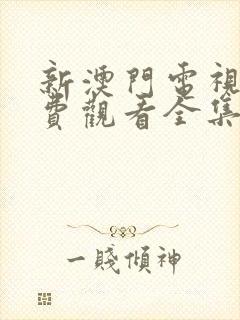 新澳門電視
費觀看全集
一賤傾神